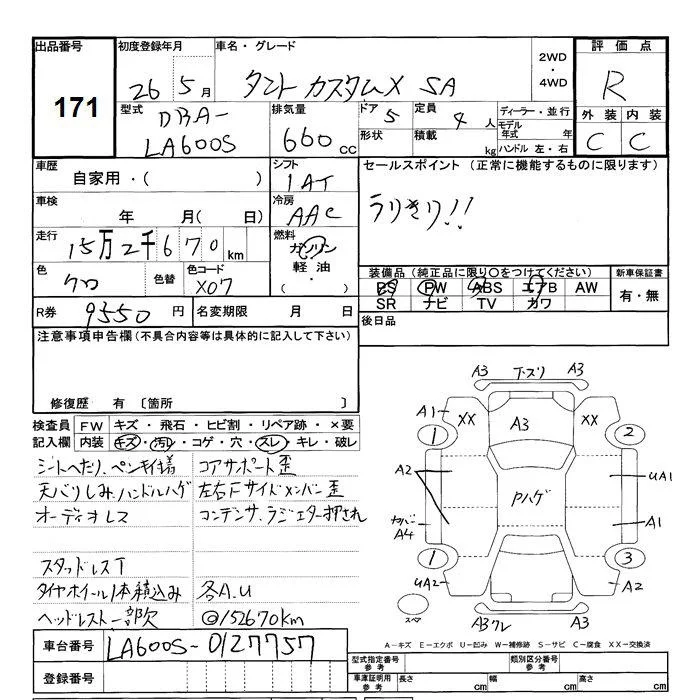 出品番号
171
初度登録年月
26 5月
車名・グレード
タント カスタムX SA
2WD
・
4WD
評価点
R
外装 内装
C C
型式
DBA-
LA600S
排気量
660 cc
ドア 5
定員 4 人
形状
積載 kg
ディーラー・並行
モデル年式 年
ハンドル 左・右
車歴
自家用・( )
シフト
1AT
車検
年 月( 日)
冷房
AAC
走行
15万2千670km
燃料
ガソリン
軽油・
( )
色
クロ
色替
色コード
X07
R券 9550円
名変期限 月 日
セールスポイント(正常に機能するものに限ります)
うりきり!!
装備品(純正品に限り○をつけてください)
PS PW ABS エアB AW
SR ナビ TV カワ
新車保証書
有・無
後日品
注意事項申告欄(不具合内容等は具体的に記入して下さい)
修復歴 有 〔箇所 〕
検査員記入欄
FW キズ・飛石・ヒビ割・リペア跡・×要
内装 キズ・汚れ・コゲ・穴・スレ・キレ・破レ
シートへたり、ペンキ付様
天バリしみ、ハンドルハゲ
オーディオレス
スタッドレスT
タイヤホイール1本積込み
ヘッドレスト一部欠
コアサポート歪
左右Fサイドメンバー歪
コンデンサ、ラジエター押され
各A.U
@152670km
A3 T・スリ A3
A1 XX A3 XX
1 2
A2 UA1
Pハゲ
カバー A4 A1
1 3
UA2 A2
スペア
A3クレ A3
A-キズ E-エクボ U-凹み W-補修跡 S-サビ C-腐食 XX-交換済
車台番号 LA600S-0127757
登録番号
型式指定番号 参考
類別区分番号 参考
車庫証明用 参考
長さ cm
幅 cm
高さ cm